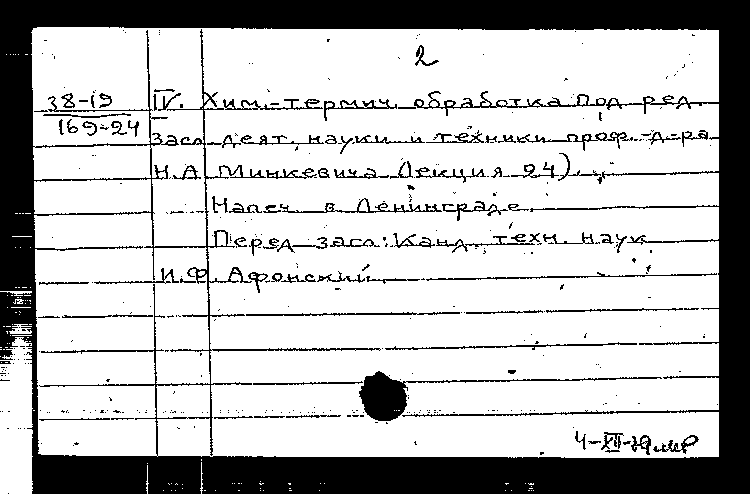 2
38-19 IV. Хим.-термич. обработка под ред.
169-24 засл. деят. науки и техники проф.-д-ра
Н.А. Минкевича (лекция 24).
Напеч. в Ленинграде.
Перед загл: Канд. техн. наук
И.Ф. Афонский.
4-XII-39